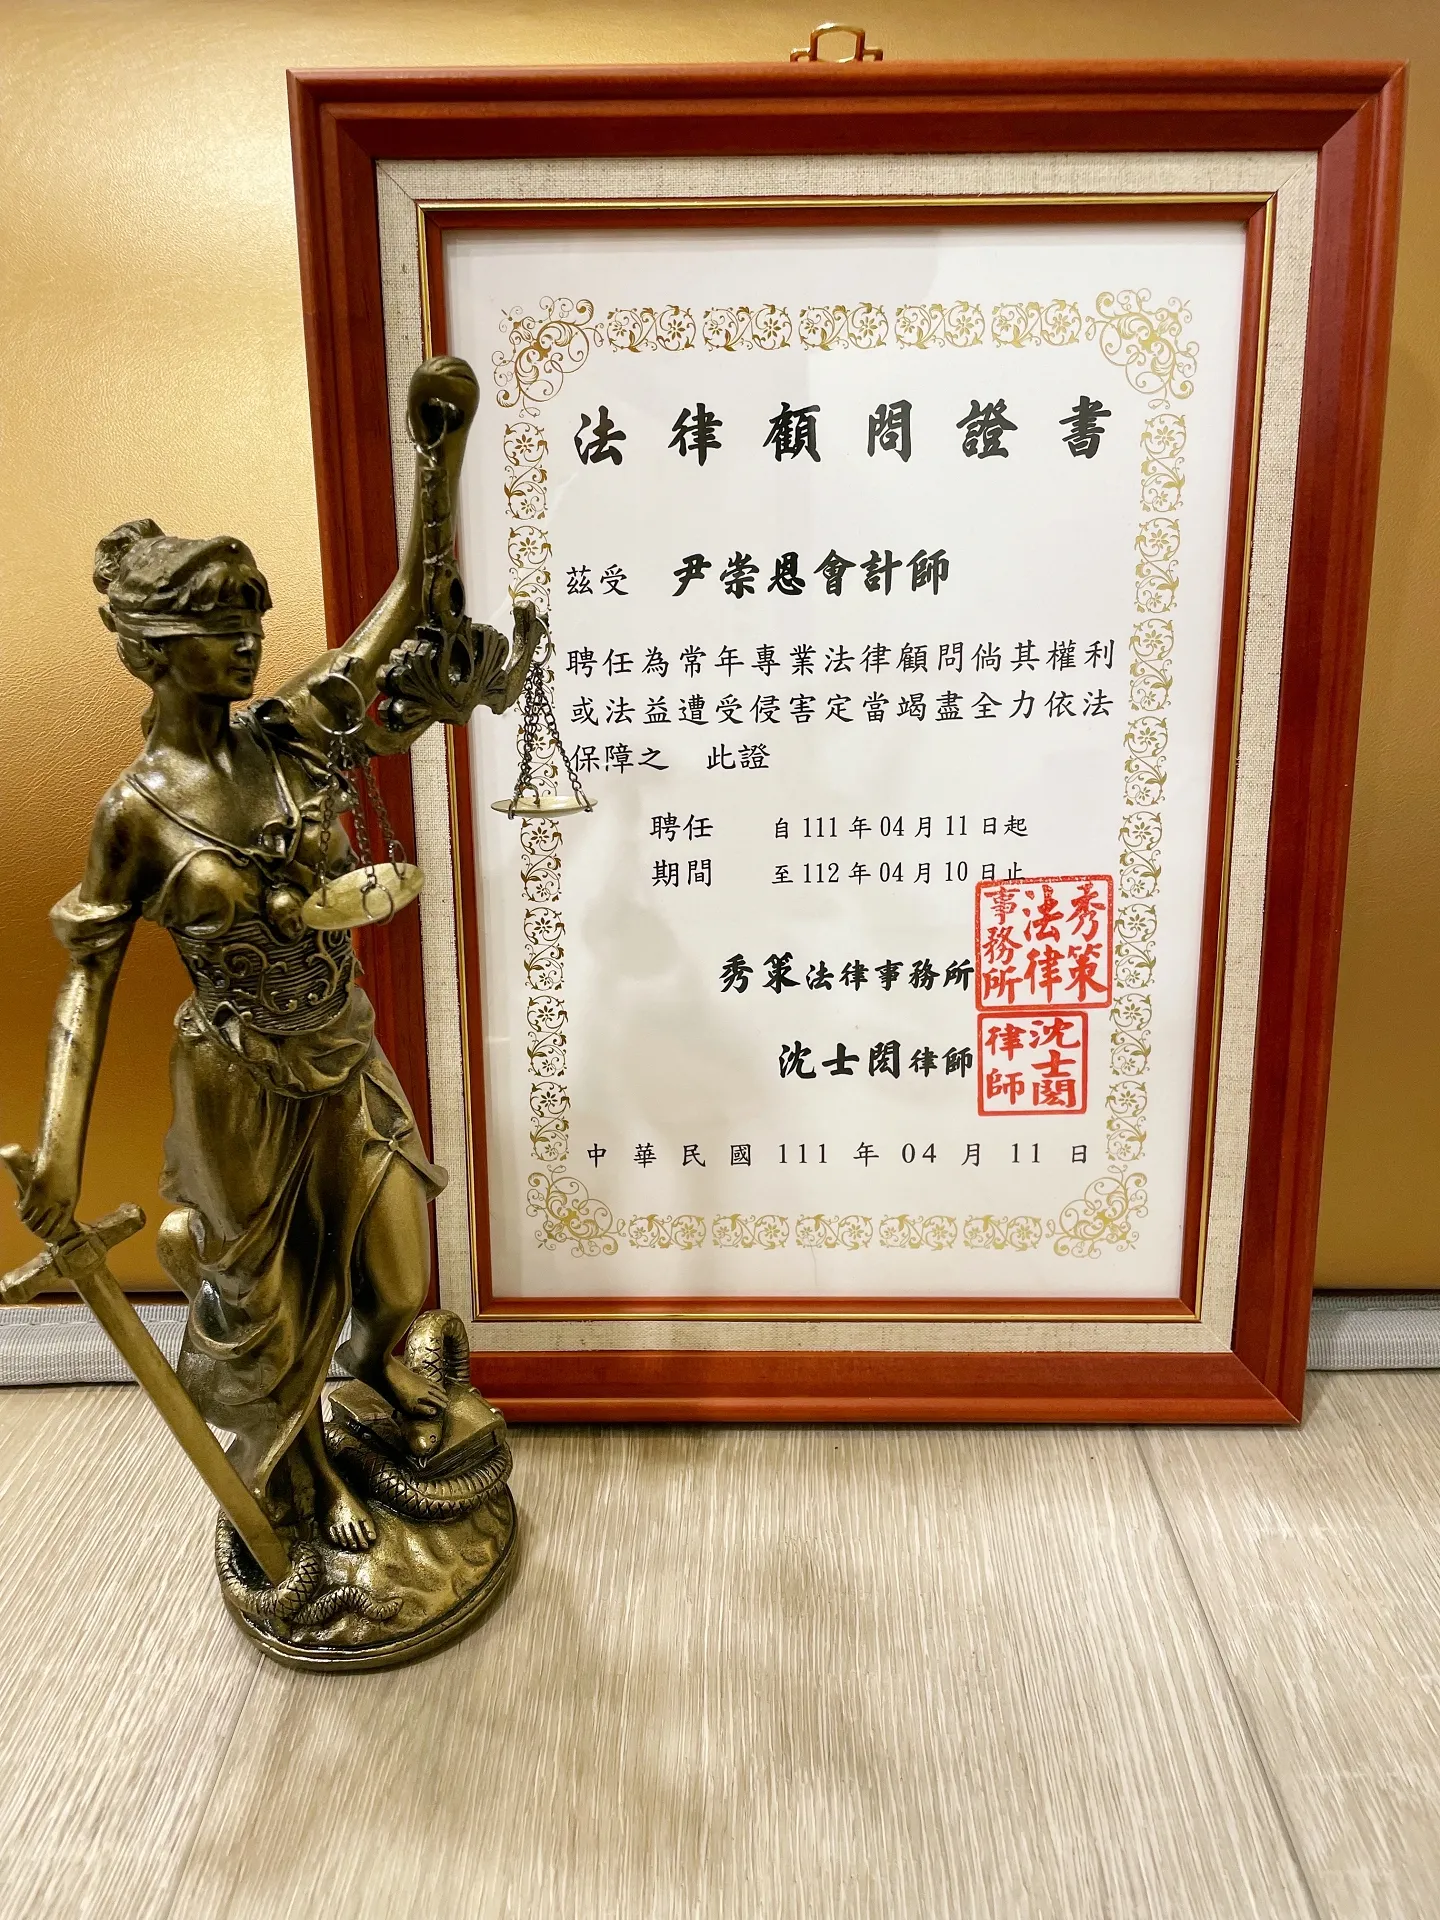 法律顧問證書
茲受 尹崇恩會計師
聘任為常年專業法律顧問倘其權利
或法益遭受侵害定當竭盡全力依法
保障之 此證
聘任 自111年04月11日起
期間 至112年04月10日止
秀策法律事務所
秀策法律事務所
沈士閎律師
沈士閎律師
中華民國111年04月11日